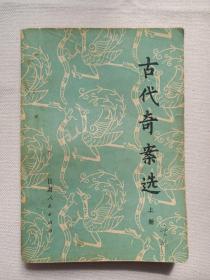 古代奇案选
上册
江苏人民出版社